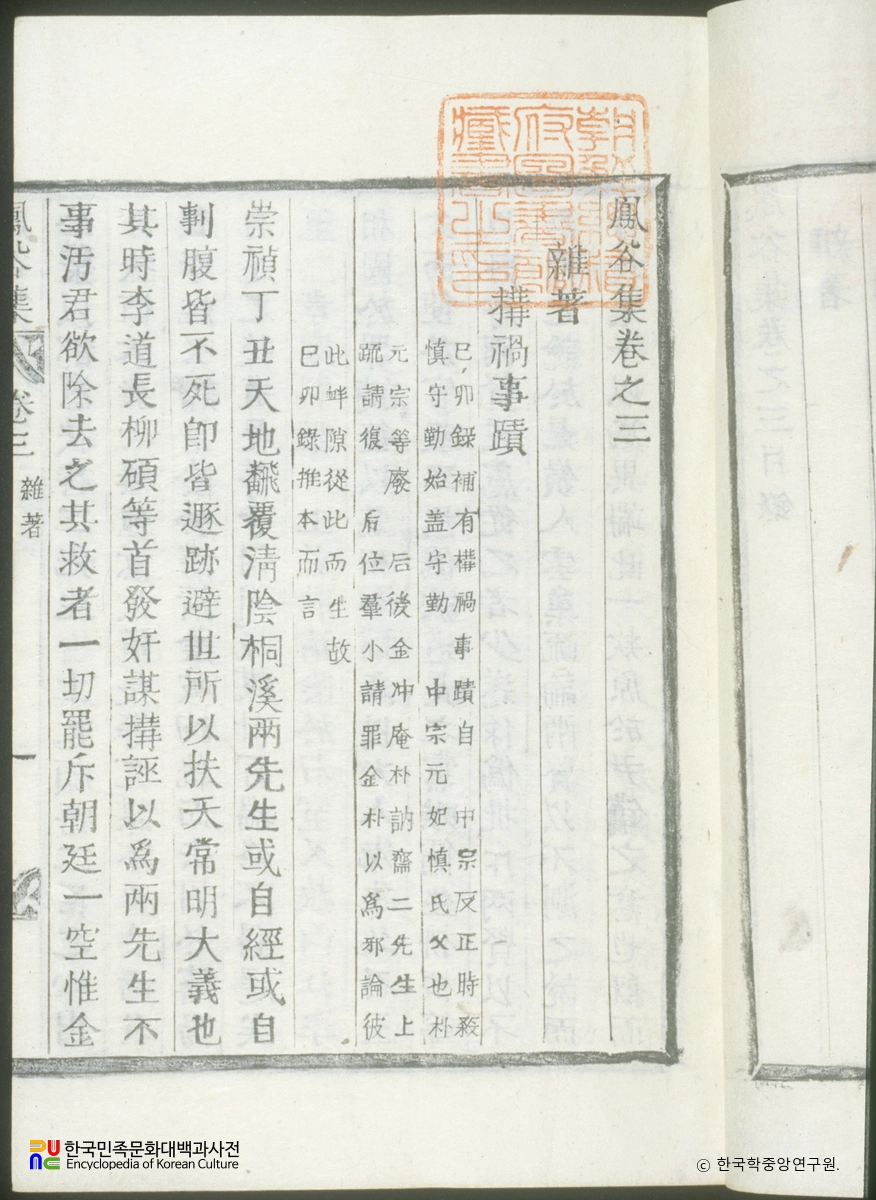 鳳谷集卷之三
雜著
搆禍事蹟
巳卯錄補有搆禍事蹟自 中宗反正時殺
愼守勤始盖守勤 中宗元妃愼氏父也朴
元宗等廢 后後金冲庵朴訥齋二先生上
疏請復 后位羣小請罪金朴以爲邪論彼
此衅隙從此而生故
巳卯錄推本而言
崇禎丁丑天地飜覆淸陰桐溪兩先生或自經或自
剚腹皆不死卽皆遯跡避世所以扶天常明大義也
其時李道長柳碩等首發奸謀搆誣以爲兩先生不
事汚君欲除去之其救者一切罷斥朝廷一空惟金
鳳谷集
卷三 雜著
一
한국민족문화대백과사전
Encyclopedia of Korean Culture
© 한국학중앙연구원.